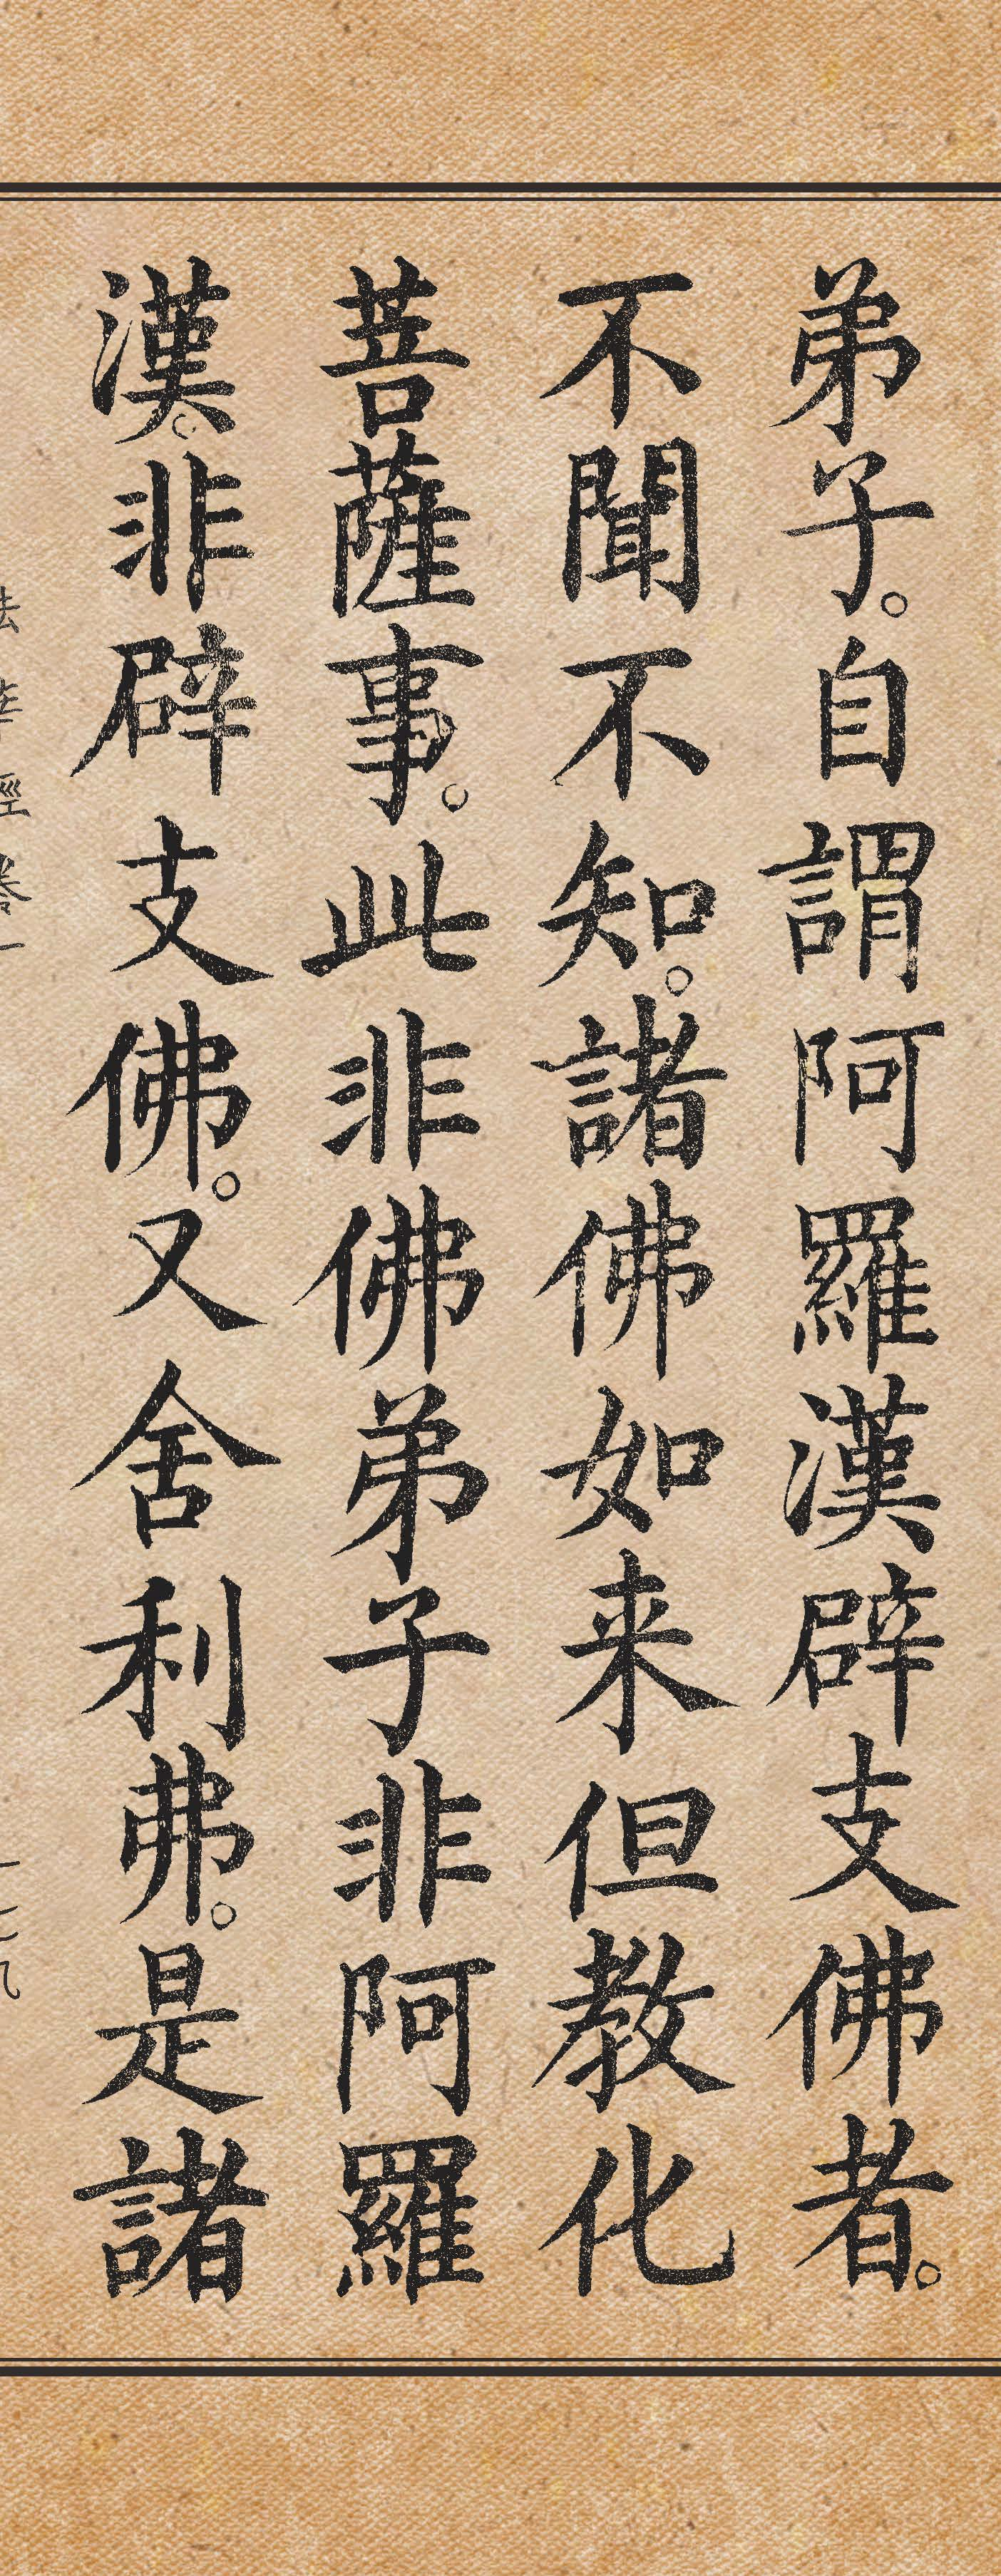 弟子。自謂阿羅漢辟支佛者。
不聞不知。諸佛如来但教化
菩薩事。此非佛弟子非阿羅
漢。非辟支佛。又舍利弗。是諸
法華經卷一 一七九